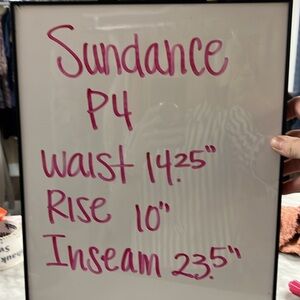 Sundance
P4
waist 14.25"
Rise 10"
Inseam 23.5"